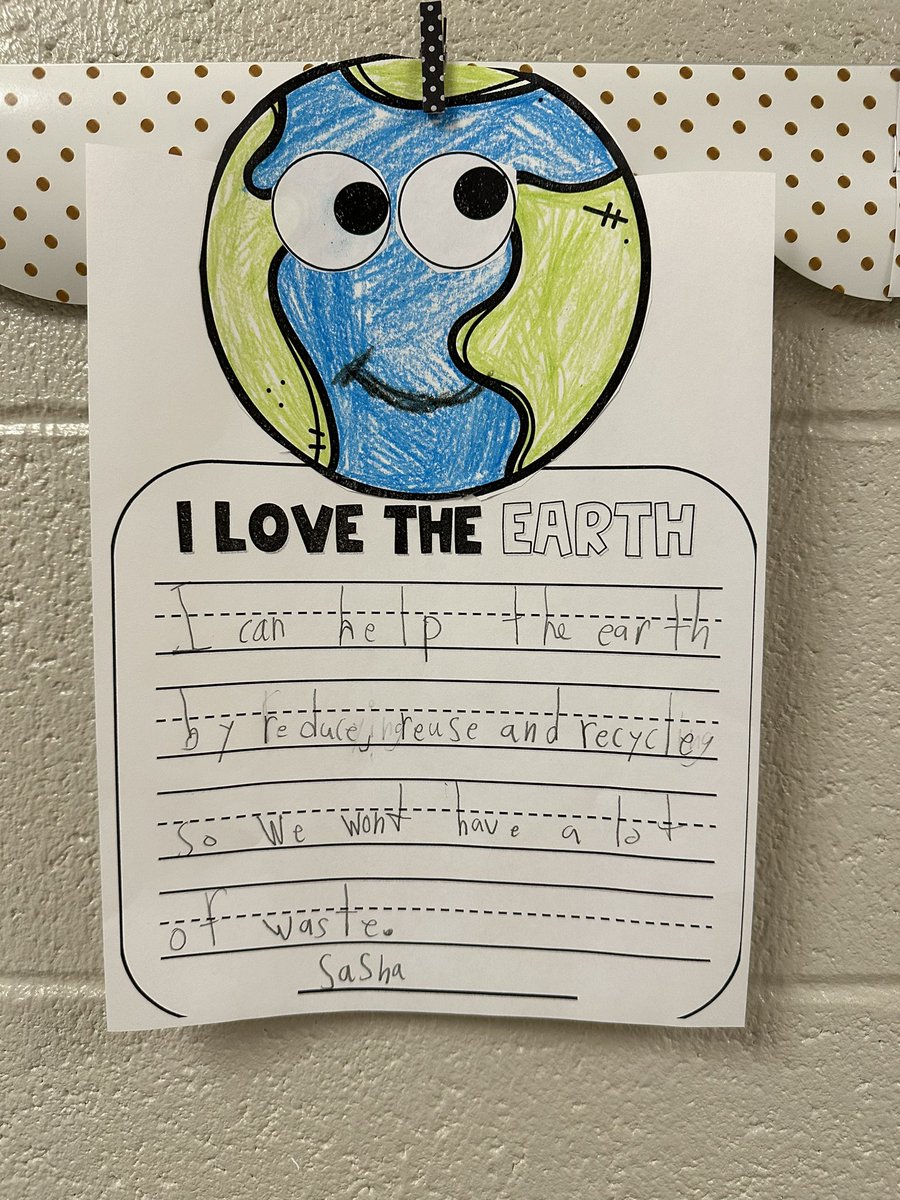 I LOVE THE EARTH
I can help the earth
by reduce, reuse and recycle
so we wont have a lot
of waste.
Sasha